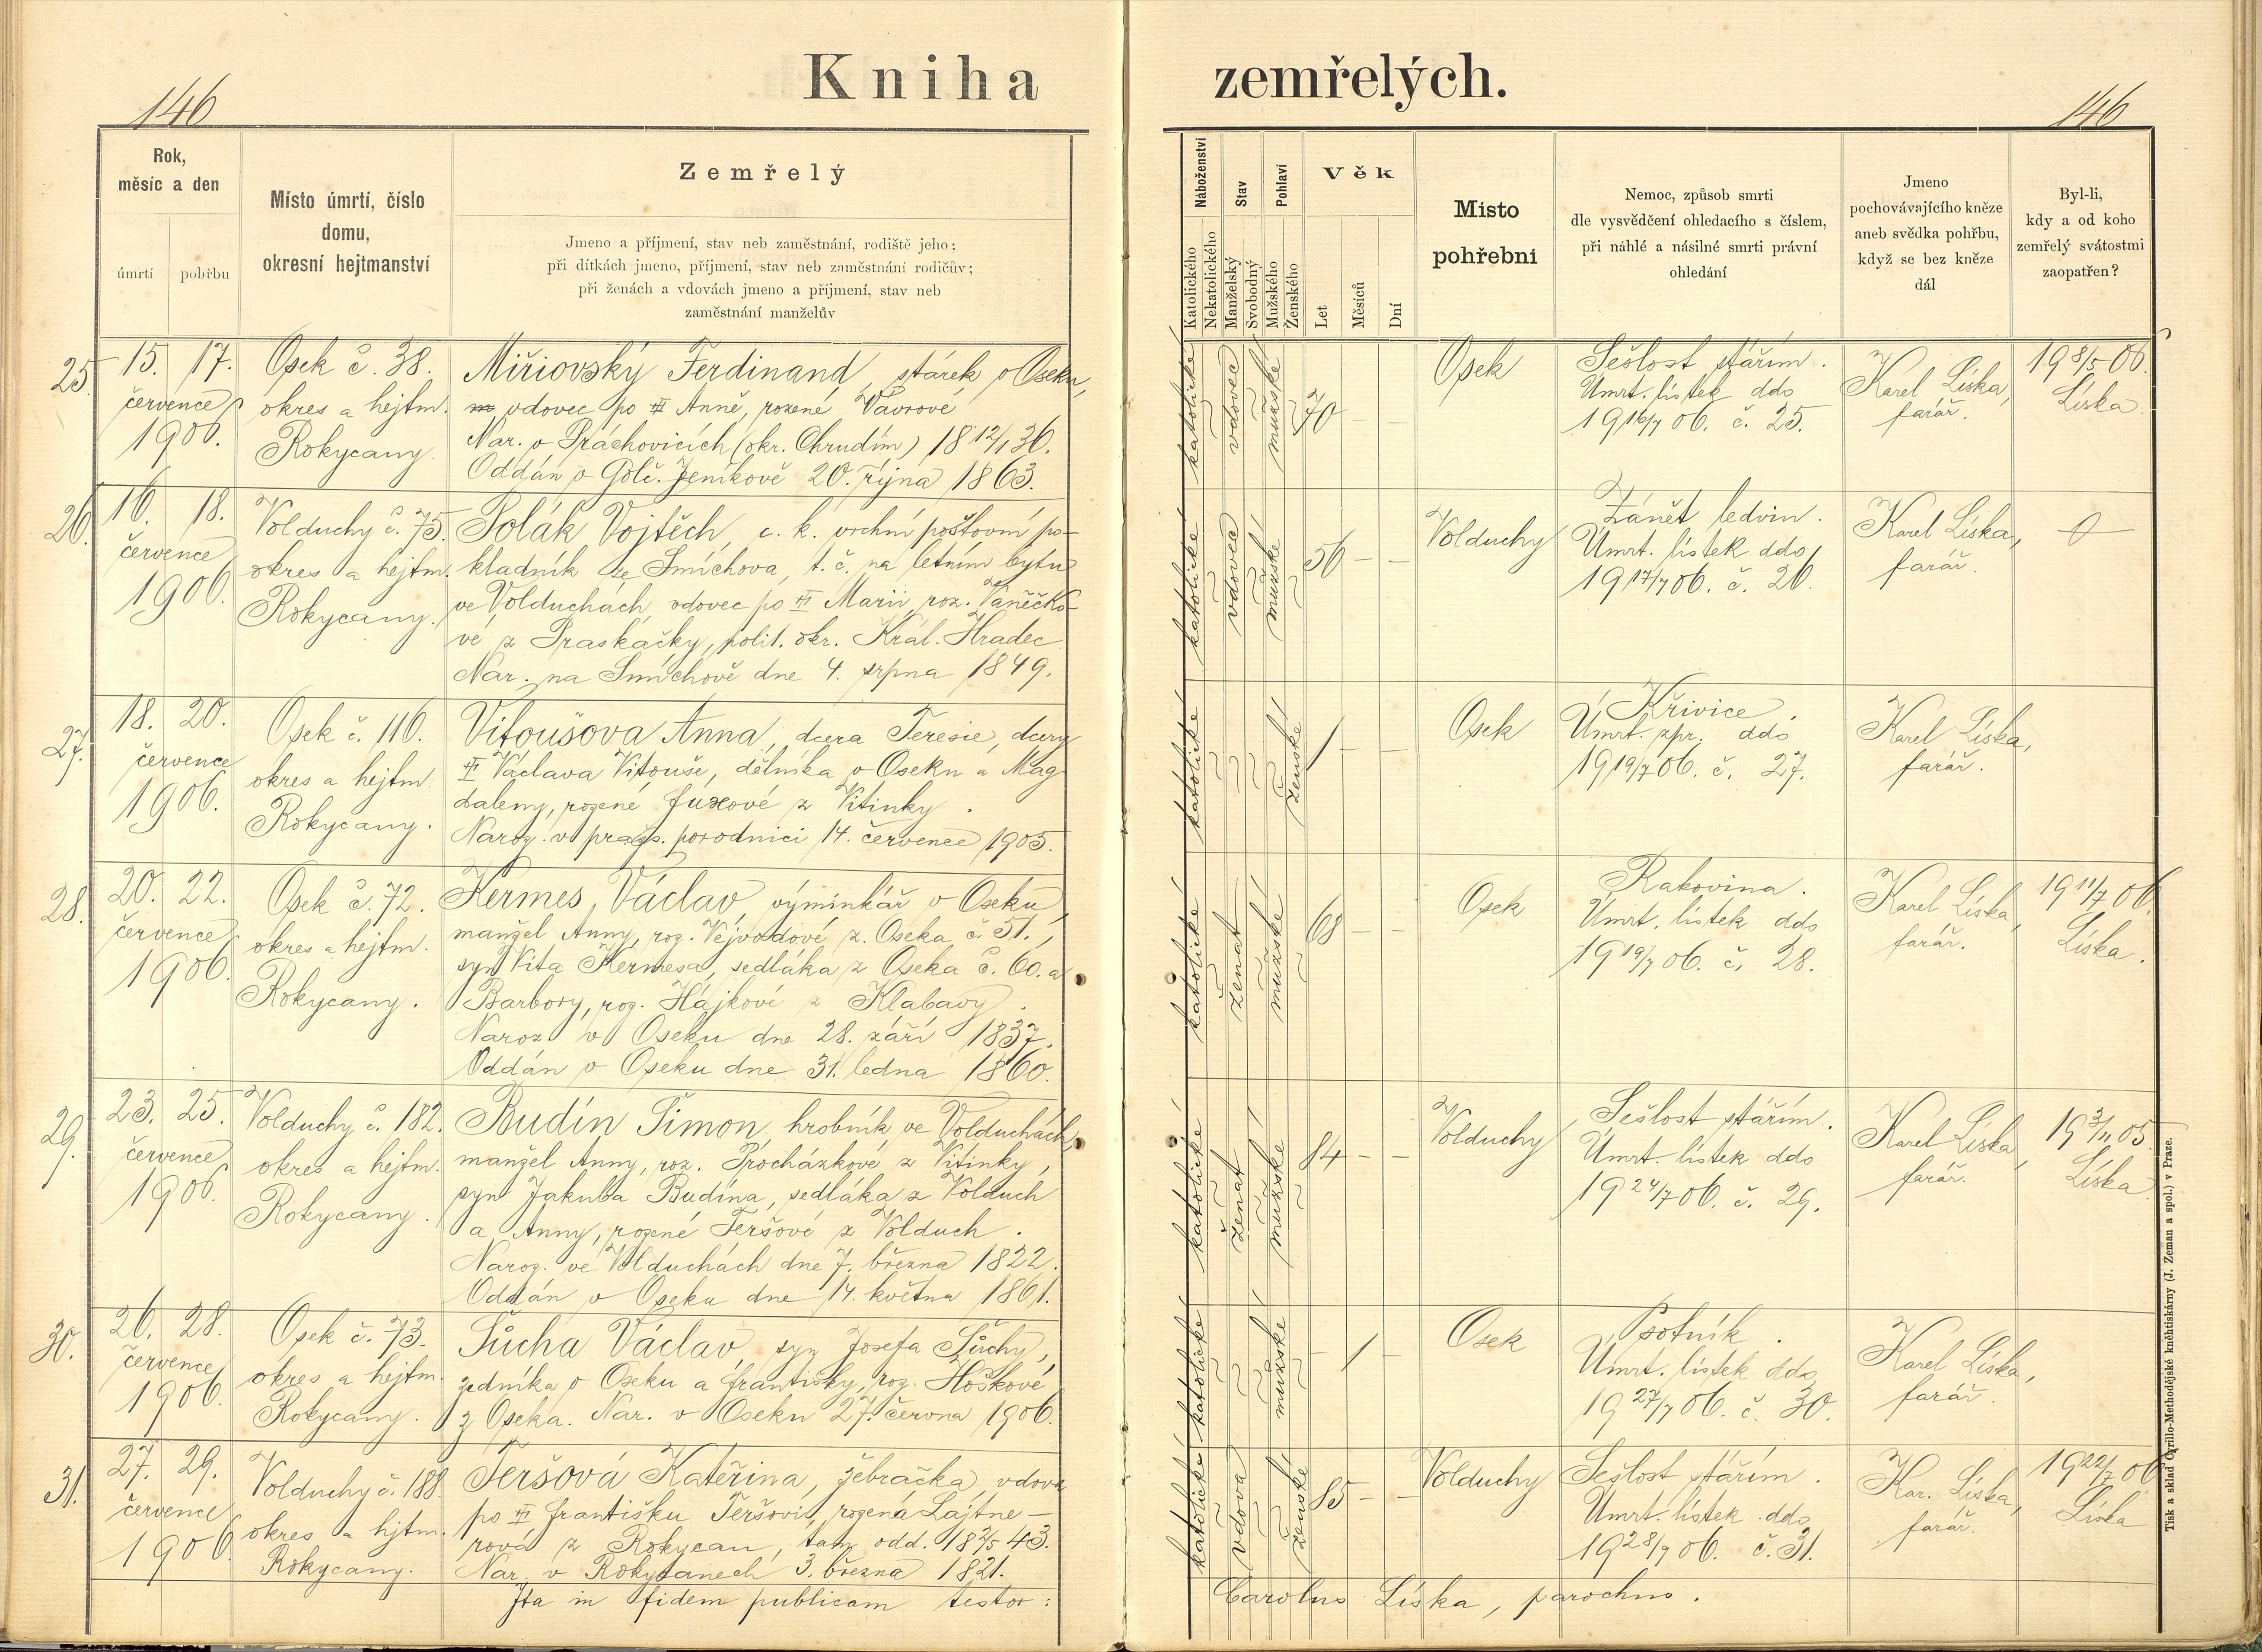 Kniha zemřelých.
146
146
Rok,
měsíc a den
úmrtí
pohřbu
Místo úmrtí, číslo
domu,
okresní hejtmanství
Zemřelý
Jmeno a příjmení, stav neb zaměstnání, rodiště jeho;
při dítkách jmeno, příjmení, stav neb zaměstnání rodičův;
při ženách a vdovách jmeno a příjmení, stav neb
zaměstnání manželův
Náboženství
Katolického
Nekatolického
Stav
Manželský
Svobodný
Pohlaví
Mužského
Ženského
Věk
Let
Měsíců
Dní
Místo
pohřební
Nemoc, způsob smrti
dle vysvědčení ohledacího s číslem,
při náhlé a násilné smrti právní
ohledání
Jmeno
pochovávajícího kněze
aneb svědka pohřbu,
když se bez kněze
dál
Byl-li,
kdy a od koho
zemřelý svátostmi
zaopatřen?
25.
15. 17.
července
1906.
Osek č. 38.
okres a hejtm.
Rokycany.
Miřiovský Ferdinand, stárek v Oseku,
vdovec po Anně, rozené Vávrové
Nar. v Práchovicích (okr. Chrudim) 18 12/1 36.
Oddán v Golč. Jeníkově 20. října 1863.
katolické
vdovec
mužské
70 – –
Osek
Sešlost stářím.
Úmrt. lístek ddo
19 16/7 06. č. 25.
Karel Líska,
farář.
19 8/5 06.
Líska.
26.
16. 18.
července
1906.
Volduchy č. 75.
okres a hejtm.
Rokycany.
Polák Vojtěch, c. k. vrchní poštovní po-
kladník ze Smíchova, t. č. na letním bytu
ve Volduchách, vdovec po Marii, roz. Vaněčko-
vé z Praskačky, polit. okr. Král. Hradec
Nar. na Smíchově dne 4. srpna 1849.
katolické
vdovec
mužské
56 – –
Volduchy
Zánět ledvin.
Úmrt. lístek ddo
19 17/7 06. č. 26.
Karel Líska,
farář.
27.
18. 20.
července
1906.
Osek č. 116.
okres a hejtm.
Rokycany.
Vitoušova Anna, dcera Teresie, dcery
Václava Vitouše, dělníka v Oseku a Mag-
daleny, rozené Fuxové z Vitinky.
Naroz. v praž. porodnici 14. července 1905.
katolické
ženské
1 – –
Osek
Křivice.
Úmrt. zpr. ddo
19 19/7 06. č. 27.
Karel Líska,
farář.
28.
20. 22.
července
1906.
Osek č. 72.
okres a hejtm.
Rokycany.
Kermes Václav, výminkář v Oseku,
manžel Anny, roz. Vejvodové z Oseka č. 51.,
syn Víta Kermesa, sedláka z Oseka č. 60. a
Barbory, roz. Hájkové z Klabavy.
Naroz. v Oseku dne 28. září 1837.
Oddán v Oseku dne 31. ledna 1860.
katolické
ženat
mužské
68 – –
Osek
Rakovina.
Úmrt. lístek ddo
19 19/7 06. č. 28.
Karel Líska,
farář.
19 11/7 06.
Líska.
29.
23. 25.
července
1906.
Volduchy č. 182.
okres a hejtm.
Rokycany.
Budín Šimon, hrobník ve Volduchách,
manžel Anny, roz. Procházkové z Vitinky,
syn Jakuba Budína, sedláka z Volduch
a Anny, rozené Teršové z Volduch.
Naroz. ve Volduchách dne 7. března 1822.
Oddán v Oseku dne 14. května 1861.
katolické
ženat
mužské
84 – –
Volduchy
Sešlost stářím.
Úmrt. lístek ddo
19 24/7 06. č. 29.
Karel Líska,
farář.
19 3/11 05.
Líska
30.
26. 28.
července
1906.
Osek č. 73.
okres a hejtm.
Rokycany.
Sůcha Václav, syn Josefa Sůchy,
zedníka v Oseku a Františky, roz. Hoškové
z Oseka. Nar. v Oseku 27. června 1906.
katolické
mužské
– 1 –
Osek
Psotník.
Úmrt. lístek ddo
19 27/7 06. č. 30.
Karel Líska,
farář.
31.
27. 29.
července
1906.
Volduchy č. 188.
okres a hjtm.
Rokycany.
Teršová Kateřina, žebračka, vdova
po Františku Teršovi, rozená Lajtne-
rová z Rokycan, tam odd. 18 2/5 43.
Nar. v Rokycanech 3. března 1821.
katolické
vdova
ženské
85 – –
Volduchy
Sešlost stářím.
Úmrt. lístek ddo
19 28/7 06. č. 31.
Kar. Líska,
farář.
19 22/7 06.
Líska
Ita in fidem publicam testor:
Carolus Líska, parochus.
Tisk a sklad Cyrillo-Methodějské knihtiskárny (J. Zeman a spol.) v Praze.